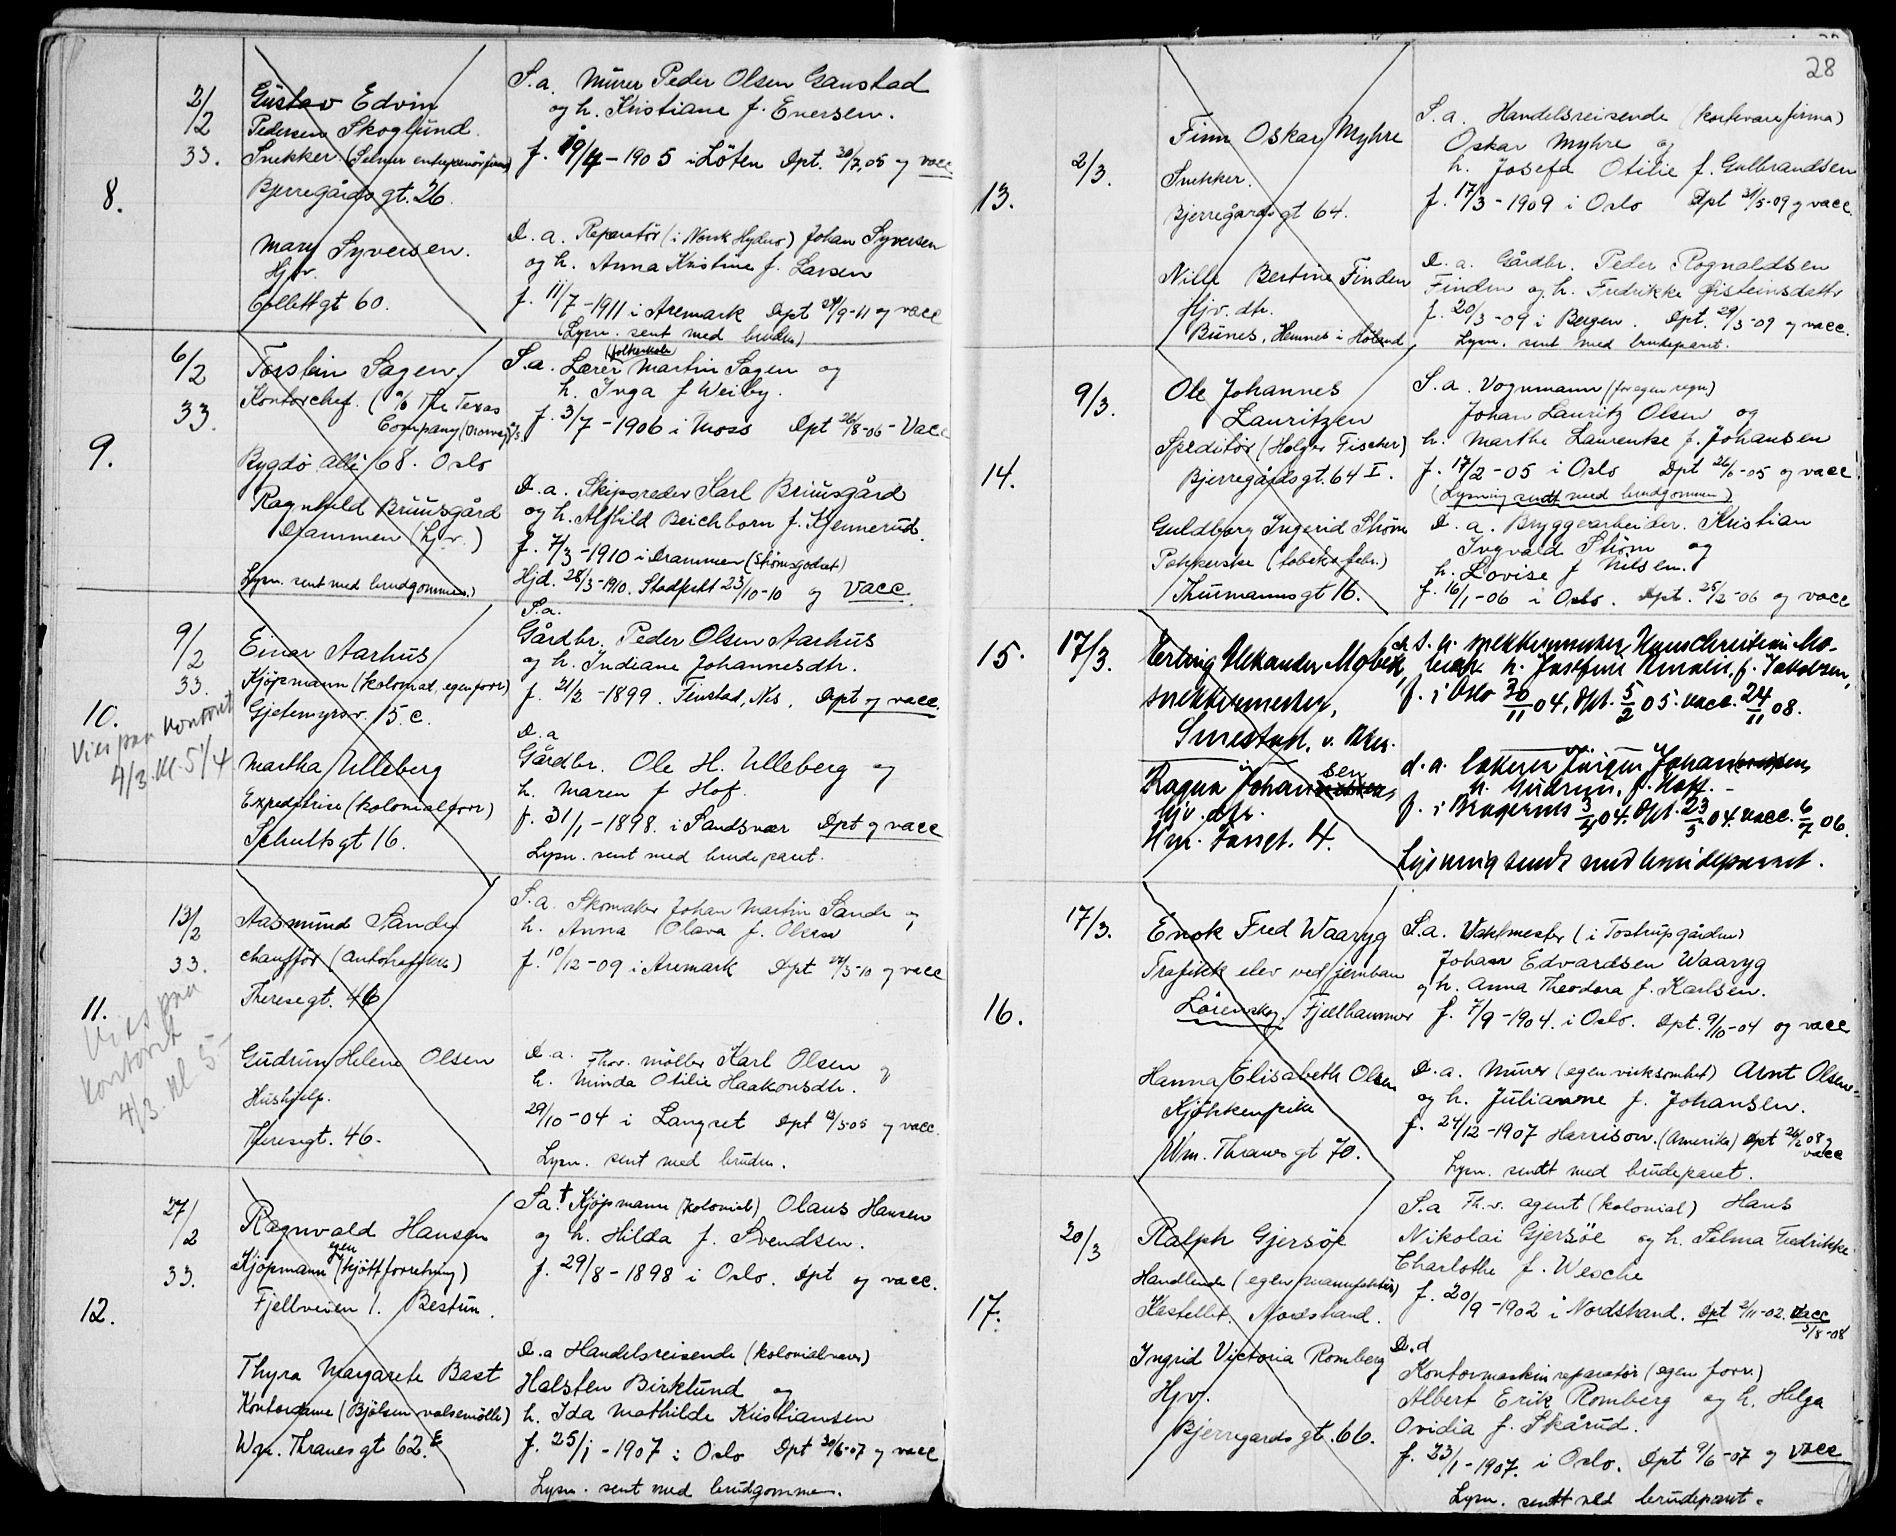 28
8.
2/2
33.
Gustav Edvin
Pedersen Skoglund.
Snekker. (Selmer entreprenørfirma)
Bjerregårds gt. 26.
S. a. Murer Peder Olsen Ganstad
og h. Kristiane f. Eversen.
f. 19/4 - 1905 i Löten Dpt. 30/7.05 og vacc
Mary Syversen.
Hjv.
Collettgt 60.
D. a. Reparatør (i Norsk Hydro) Johan Syversen
og h. Anna Kristine f. Larsen
f. 11/7 - 1911 i Aremark Dpt 24/9-11 og vacc
(Lysn. sent med bruden)
9.
6/2
33.
Torstein Sagen.
Kontorchef. (% The Texas
Company (Norway) A/S
Bygdö allé 68. Oslo
S. a. Lærer (folkeskole) Martin Sagen og
h. Inga f Weiby.
f. 3/7 - 1906 i Moss Dpt 26/8-06 - Vacc
Ragnhild Bruusgård
Drammen (hjv.)
Lysn. sent med brudgommen.)
D. a. Skipsreder Karl Bruusgård
og h. Alfhild Beichborn f. Kjennerud.
f. 7/3 - 1910 i Drammen (Strømsgodset)
Hjd. 28/3-1910. Stadfestet 23/10-10 og Vacc.
10.
9/2
33.
Vies paa kontoret
4/3. kl. 5 1/4
Einar Aarhus
Kjöpmann (kolonial, egen forr)
Gjetemyrsv. 15 c.
S. a.
Gårdbr. Peder Olsen Aarhus
og h. Indiane Johannesdtr.
f. 21/2 - 1899. Nes. Dpt og vacc.
Martha Ulleberg
Expeditrise (kolonialforr)
Schults gt 16.
D. a
Gårdbr. Ole H. Ulleberg og
h. Maren f Hof.
f. 31/1 - 1898. i Sandsvær Dpt og vacc
Lysn. sent med brudeparet.
11.
13/2
33.
Vies paa
kontoret
4/3. kl 5-
Aasmund Sande
chauffør (Autotrafikk)
Theresegt. 46
S. a. Skomaker Johan Martin Sande og
h. Anna Olava f. Olsen
f. 10/12 - 09 i Aremark Dpt 3-10 og vacc
Gudrun Helene Olsen
Hushjelp.
Theresegt. 46.
D. a. Fhv. møller Karl Olsen og
h. Minda Otilie Haakonsdtr.
29/10 - 04 i Langset Dpt 12/3-05 og vacc.
Lysn. sent med bruden.
12.
27/2
33.
Ragnvald Hansen
Kjöpmann (egen kjöttforretning)
Fjellveien 1. Bestum.
S a. † Kjöpmann (kolonial) Olaus Hansen
og h. Hilda f. Svendsen.
f. 29/8 - 1898 i Oslo. Dpt og vacc.
Thyra Margarete Bast
Kontordame (Bjölsen valsemölle)
Wm. Thranes gt 62 E
D. a Handelsreisende (kolonialvarer)
Halsten Birklund og
h. Ida Mathilde Kristiansen
f. 25/1 - 1907 i Oslo Dpt 30/6-07 og vacc
Lysn. sent med brudgommen.
13.
2/3.
Finn Oskar Myhre
Snekker.
Bjerregårds gt 64.
S. a. Handelsreisende (kortevarefirma)
Oskar Myhre og
h. Josefa Otilie f. Gulbrandsen
f. 17/3 - 1909 i Oslo Dpt 31/5-09 og vacc.
Nille Bertine Finden
Hjv. dtr.
Bunes, Hemnes i Höland
D. a. Gårdbr. Peder Rognaldsen
Finden og h. Fredrikke Øisteinsdattr
f. 20/3 - 09 i Bergen. Dpt. 29/3-09 og vacc.
Lysn. sent med brudeparet.
14.
9/3.
Ole Johannes
Lauritzen
Speditör (Holger Fischer)
Bjerregårdsgt. 64 I.
S. a. Vognmann (for egen regn.)
Johan Lauritz Olsen og
h. Marthe Laurentze f. Johansen
f. 17/2 - 05 i Oslo Dpt 26/6-05 og vacc
(Lysning sendt med brudgommen)
Guldborg Ingerid Ström
Pakkerske (tobaksfabr.)
Thurmannsgt 16.
D. a. Bryggearbeider. Kristian
Ingvald Ström og
h. Lovise f Nilsen.
f. 16/1 - 06 i Oslo. Dpt. 25/2-06 og vacc
15.
17/3.
Erling Alexander Mobech,
snekkermester,
Smestad, v. Aker.
S. a. snekkermester Hans Christian Mo-
bech h. Josefine Amalie, f. Jakobsen,
f. i Oslo 30/11 04, dpt. 5/2 05. vacc. 24/11 08.
Ragna Johansen
hjv. dtr.
Wm. Transgt. 4.
d. a. lakerer Jürgen Johansen,
h. Gudrun, f. Hoff. -
f. i Bragernes 3/4 04. dpt. 23/5 04. vacc. 6/7 06.
Lysning sendt med brudeparret.
16.
17/3.
Enok Fred Waaryg
Trafikk elev ved jernbanen
Lörenskog. Fjellhammer
S. a. Vaktmester (i Tostrupgården)
Johan Edvardsen Waaryg
og h. Anna Theodora f. Karlsen.
f. 7/9 - 1904. i Oslo. Dpt. 9/10-04 og vacc
Hanna Elisabeth Olsen
Kjökkenpike
Wm. Thranes gt 70.
D. a. Murer (egen virksomhet) Arnt Olsen
og h. Julianne f. Johansen.
f. 24/12 - 1907 Harrison. (Amerika) Dpt 26/6 08 og
vacc
Lysn. sendt med brudeparet.
17.
20/3
Ralph Gjersöe
Handlende (egen manufaktur)
Kastellet. Nordstrand.
S. a Fh.v. agent (kolonial) Hans
Nikolai Gjersöe og h. Selma Fredrikke
Charlotte f. Wesche
f. 20/9 - 1902 i Nordstrand. Dpt 2/11-02. Vacc
5/8-08
Ingrid Victoria Romberg
Hjv.
Bjerregards gt. 66.
D. d
Kontormaskinreparatør (egen forr.)
Albert Erik Romberg og h. Helga
Ovidia f. Skårud.
f. 23/1 - 1907. i Oslo. Dpt 9/6-07 og vacc
Lysn. sendt med brudeparet.